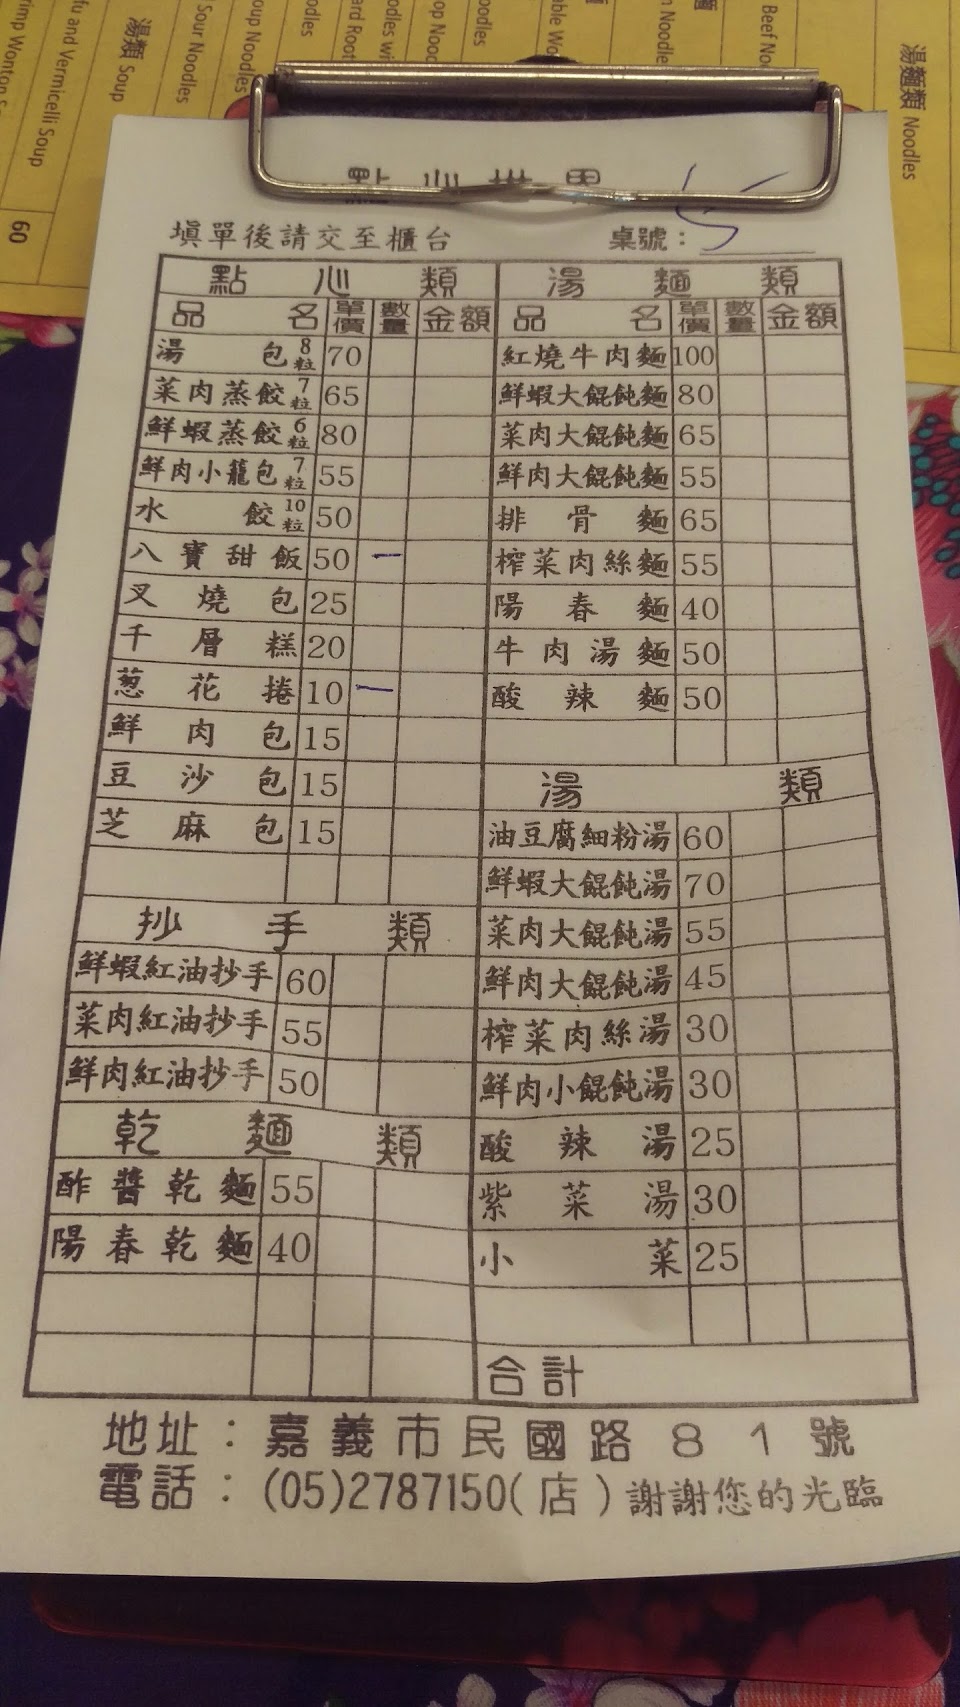 湯麵類 Noodles
湯類 Soup
60
點心世界
填單後請交至櫃台 桌號：5
點心類
品名 單價 數量 金額
湯包8粒 70
菜肉蒸餃7粒 65
鮮蝦蒸餃6粒 80
鮮肉小籠包7粒 55
水餃10粒 50
八寶甜飯 50 一
叉燒包 25
千層糕 20
葱花捲 10 一
鮮肉包 15
豆沙包 15
芝麻包 15
抄手類
鮮蝦紅油抄手 60
菜肉紅油抄手 55
鮮肉紅油抄手 50
乾麵類
酢醬乾麵 55
陽春乾麵 40
湯麵類
品名 單價 數量 金額
紅燒牛肉麵 100
鮮蝦大餛飩麵 80
菜肉大餛飩麵 65
鮮肉大餛飩麵 55
排骨麵 65
榨菜肉絲麵 55
陽春麵 40
牛肉湯麵 50
酸辣麵 50
湯類
油豆腐細粉湯 60
鮮蝦大餛飩湯 70
菜肉大餛飩湯 55
鮮肉大餛飩湯 45
榨菜肉絲湯 30
鮮肉小餛飩湯 30
酸辣湯 25
紫菜湯 30
小菜 25
合計
地址：嘉義市民國路81號
電話：(05)2787150(店)謝謝您的光臨